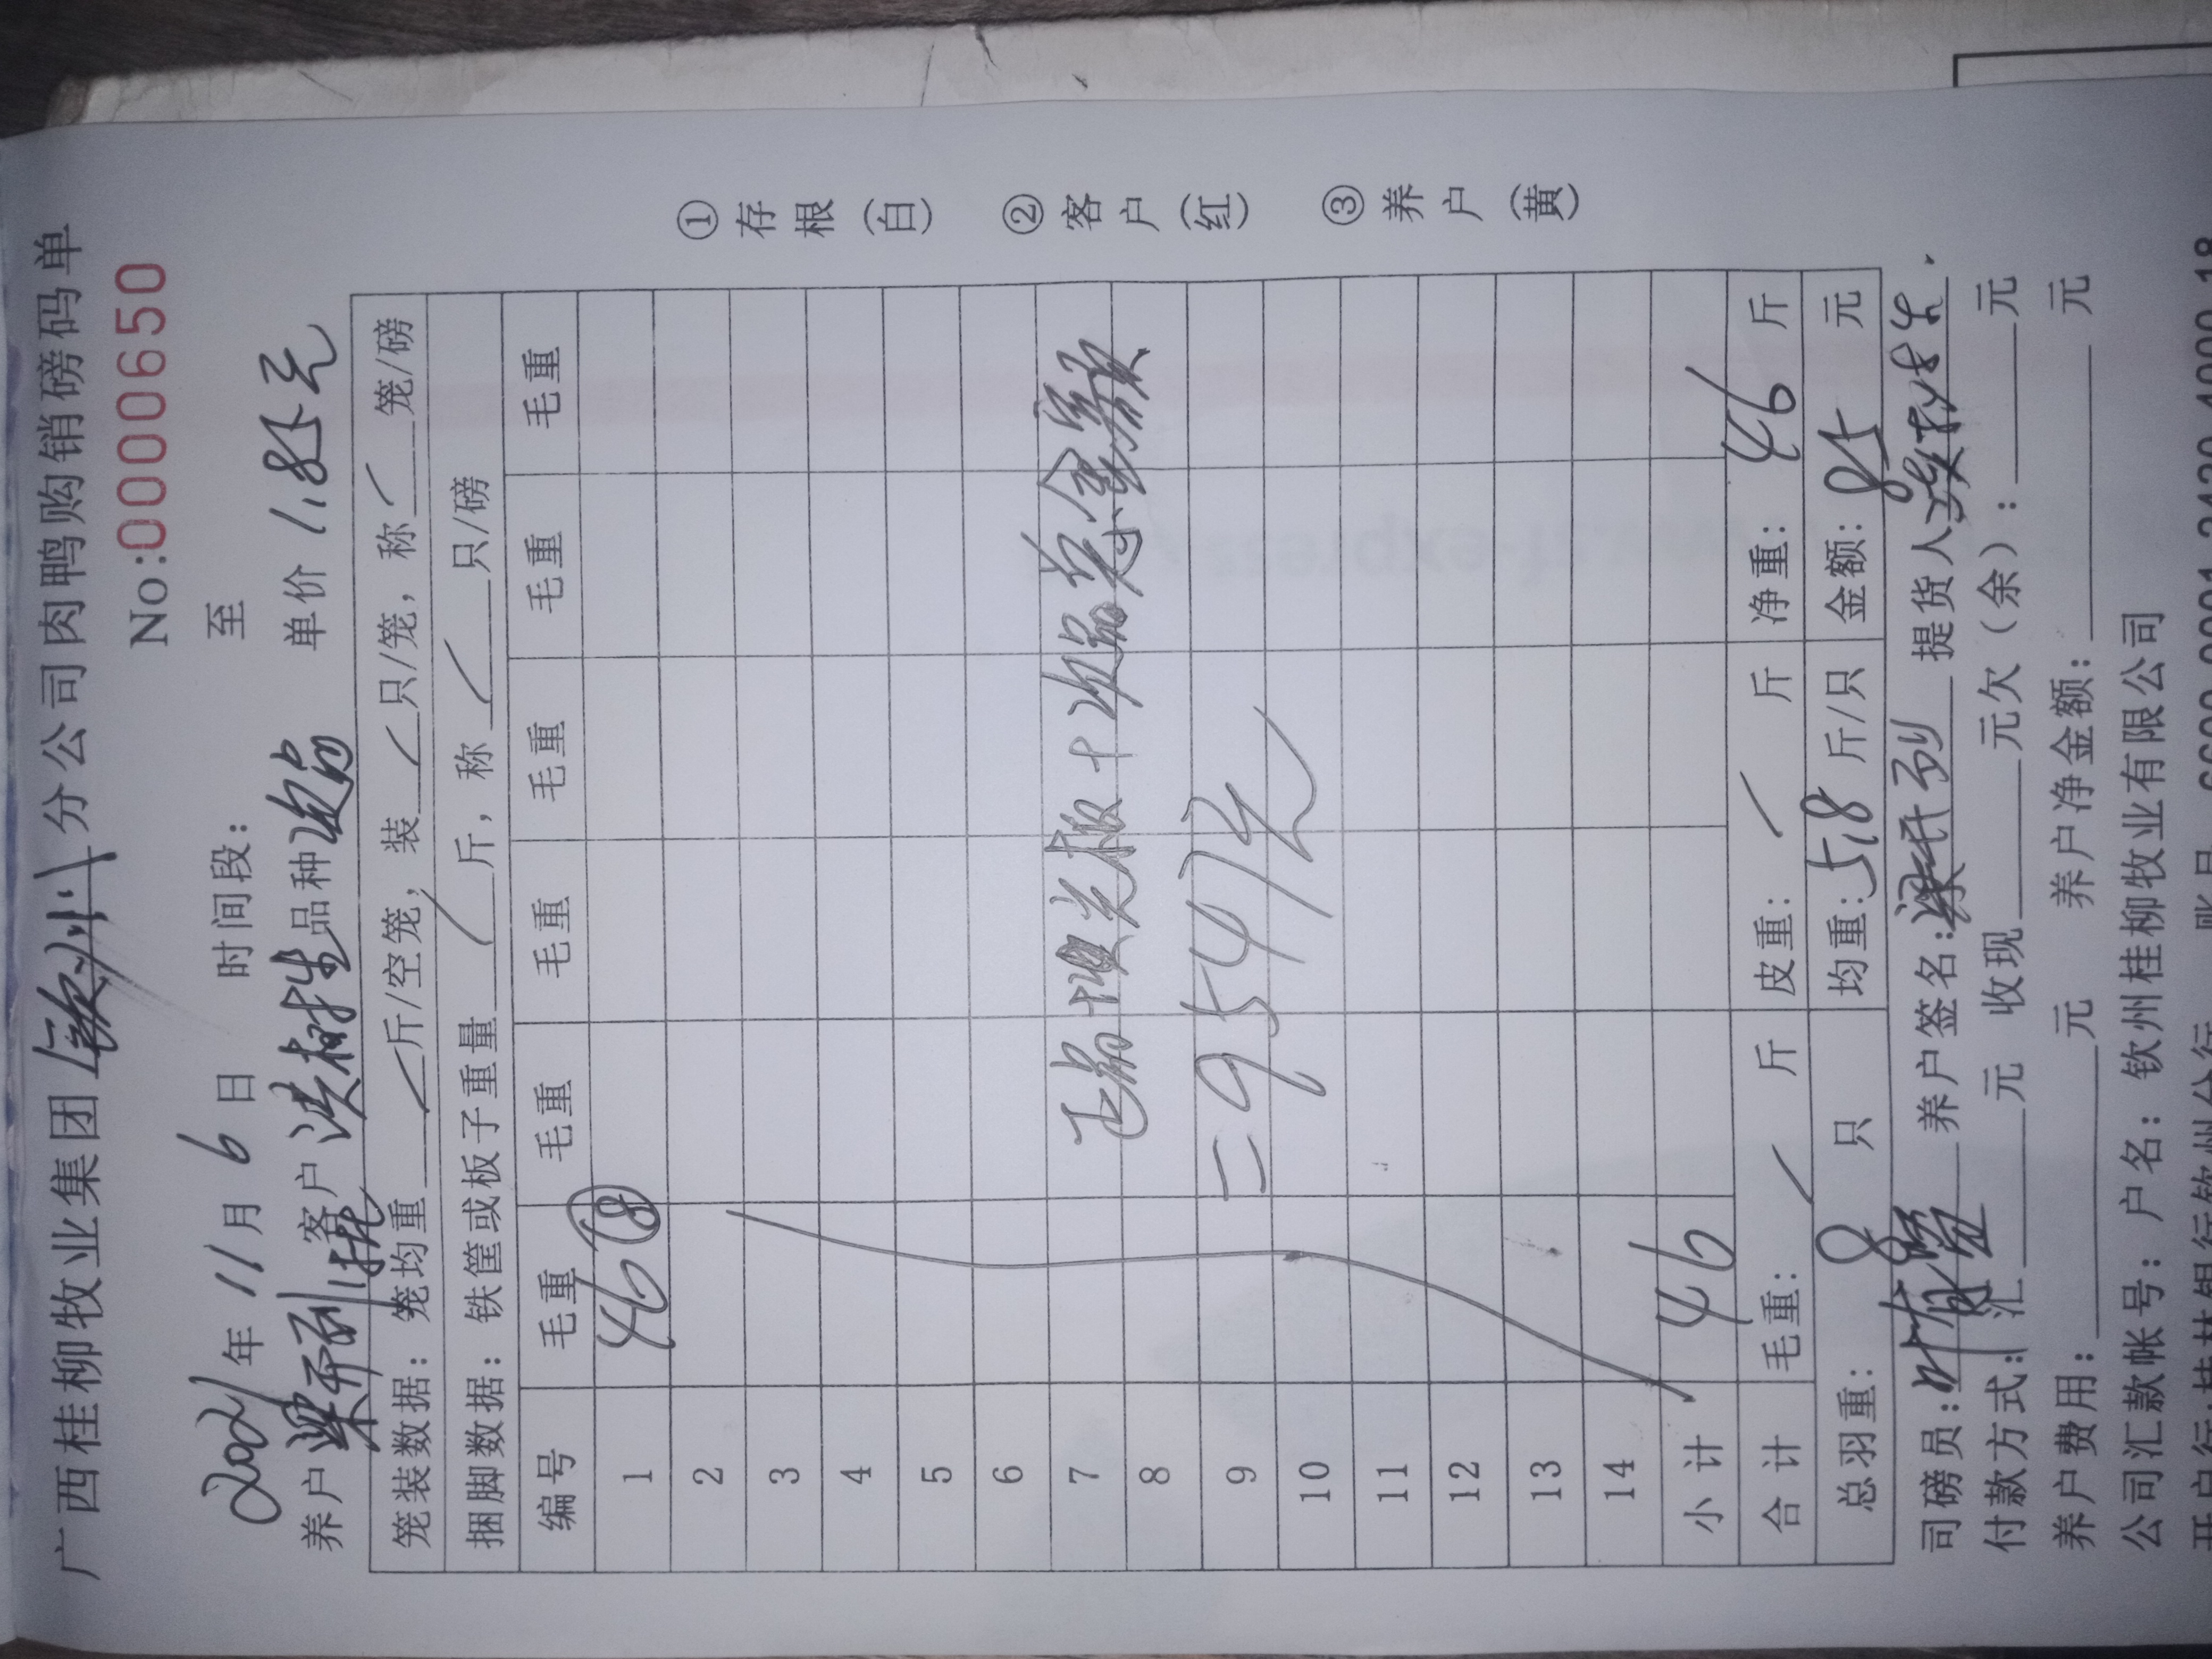 广西桂柳牧业集团 钦州 分公司肉鸭购销磅码单
No:0000650
2021年 11月 6日 时间段： 至
养户 客户 品种次品 单价 1.85元
笼装数据：笼均重 斤/空笼，装 只/笼，称 笼/磅
捆脚数据：铁筐或板子重量 斤，称 只/磅
编号 毛重 毛重 毛重 毛重 毛重 毛重
1 46 ⑧
2
3
4
5
6
7 正品 + + 次品总金额
8
9 =9547元
10
11
12
13
14
小计 46
合计 毛重： 斤 皮重： 斤 净重： 46 斤
总羽重： 8 只 均重：5.8 斤/只 金额：85 元
司磅员： 养户签名： 提货人
付款方式：汇 元 收现 元欠（余）： 元
养户费用： 元 养户净金额： 元
公司汇款帐号：户名：钦州桂柳牧业有限公司
①存根（白） ②客户（红） ③养户（黄）